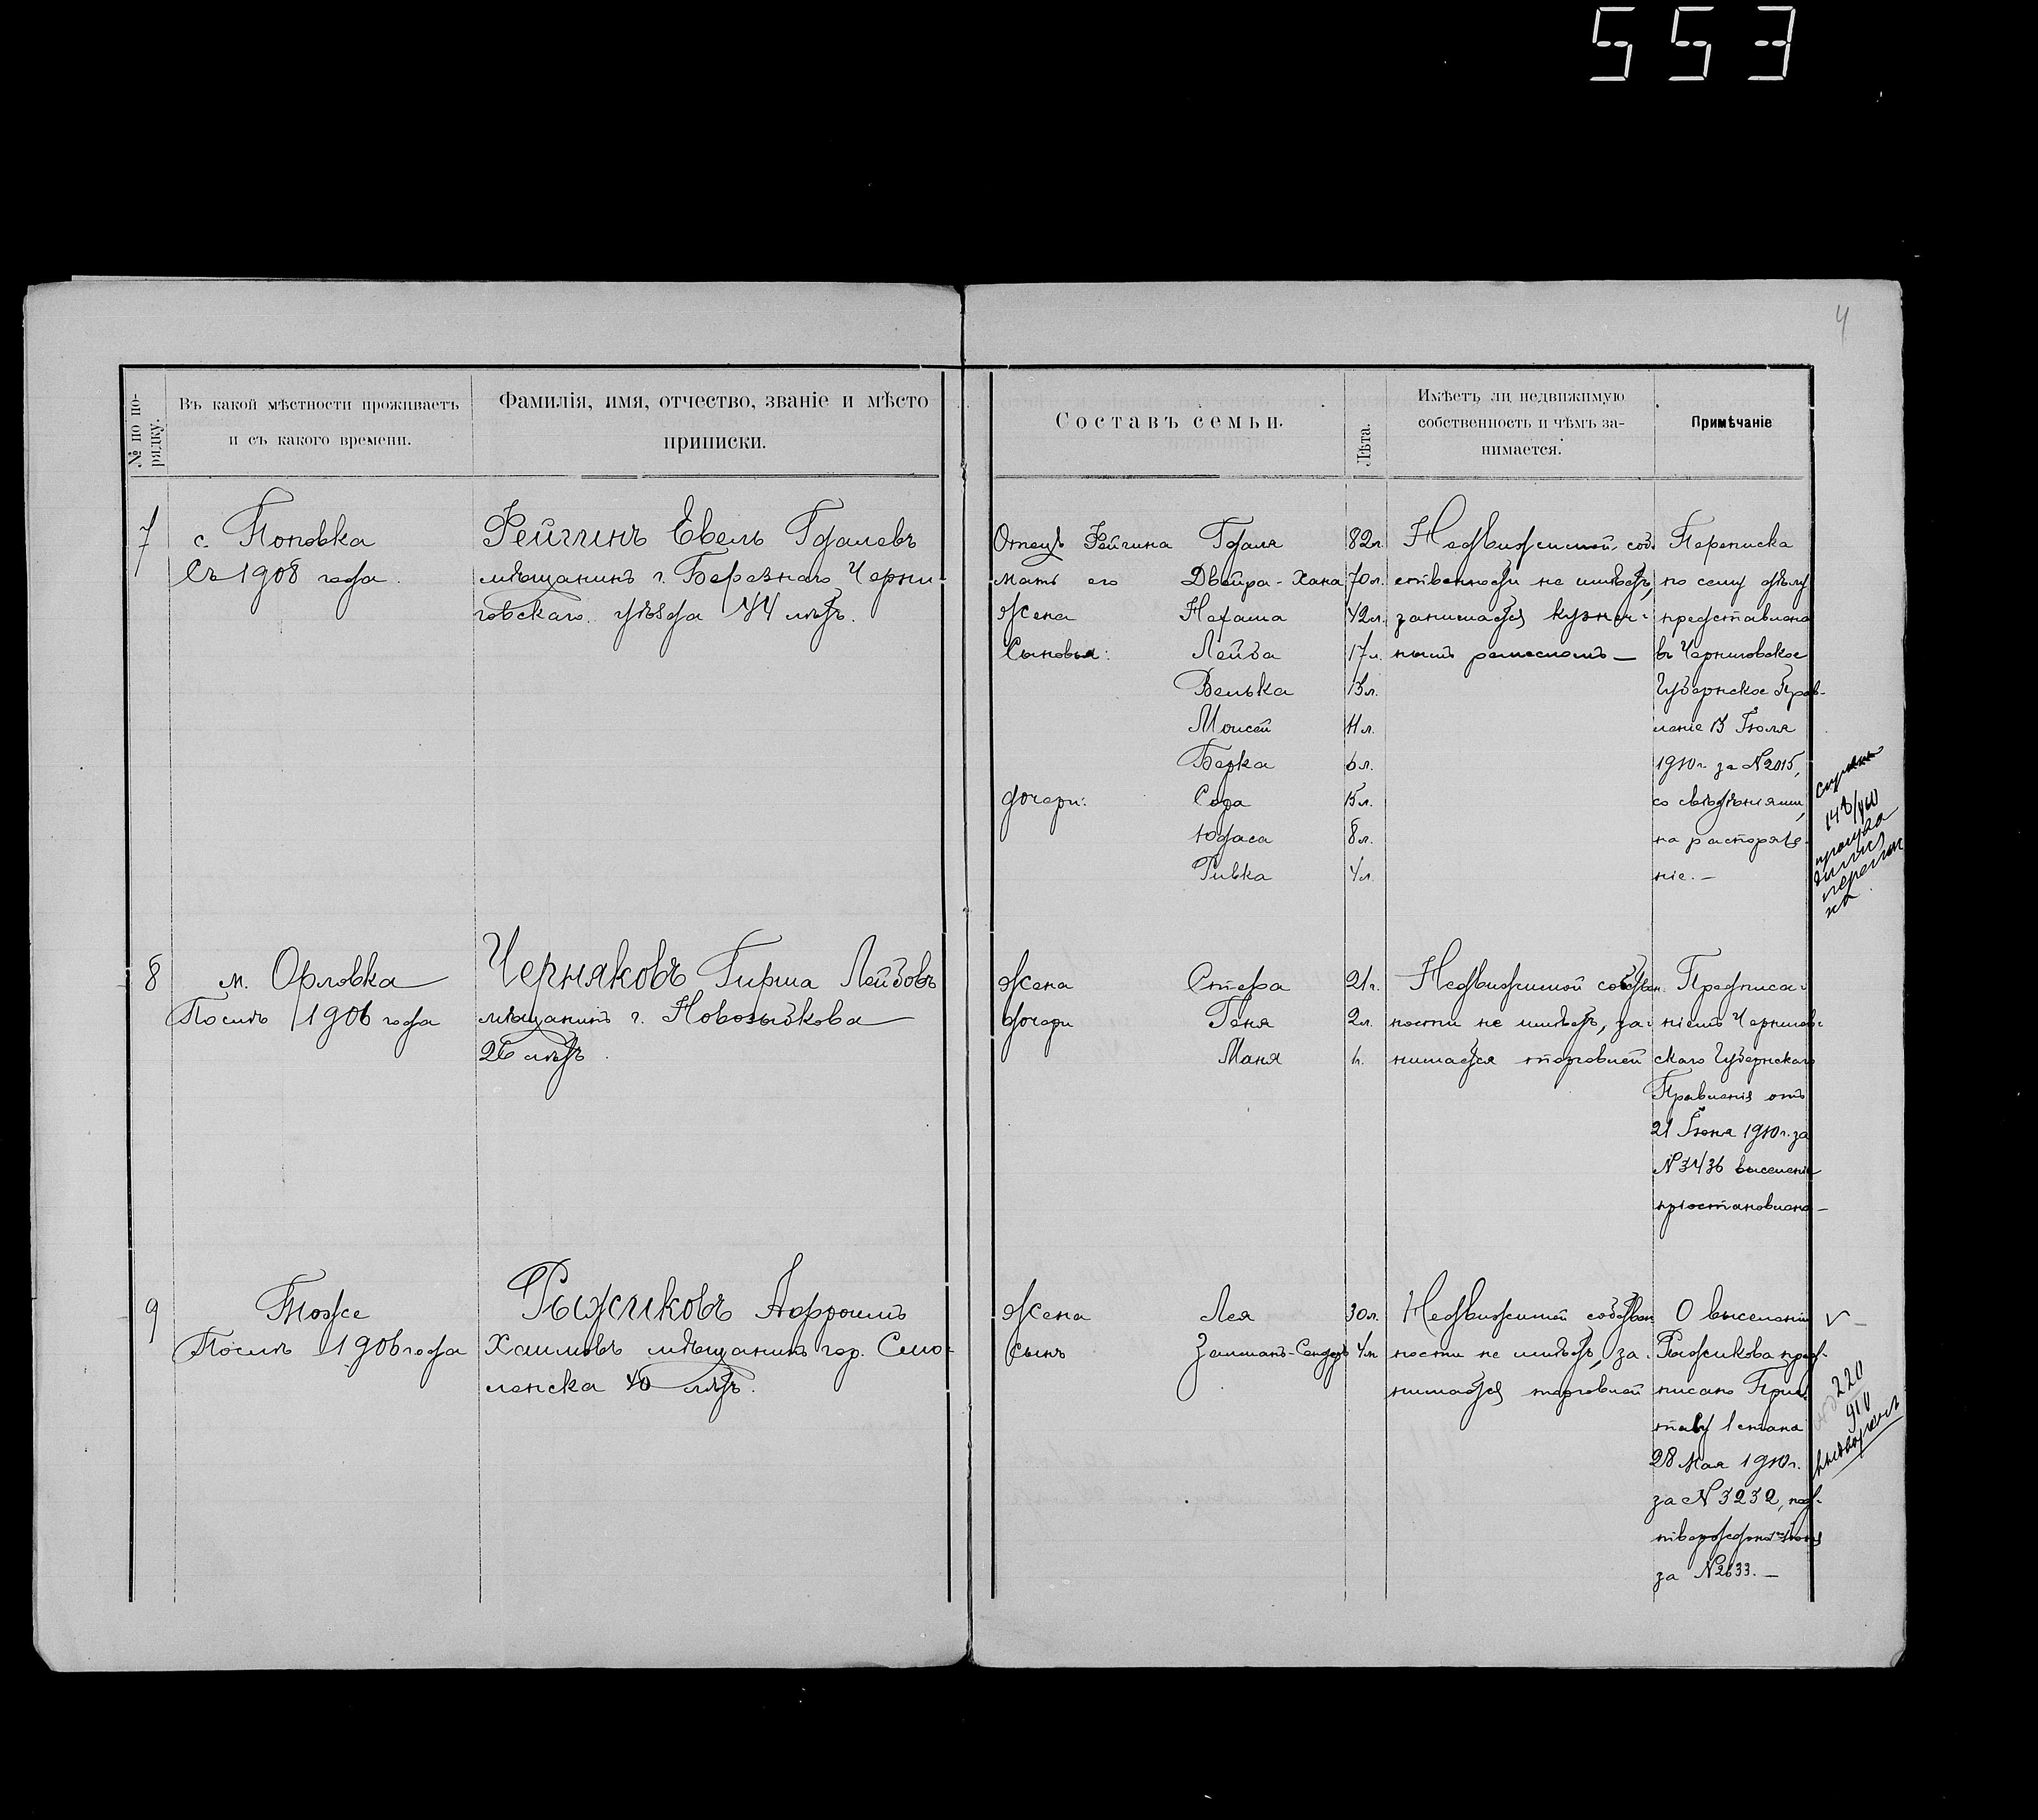 553
4
№ по по-
рядку.
Въ какой мѣстности проживаетъ
и съ какого времени.
Фамилія, имя, отчество, званіе и мѣсто
приписки.
Составъ семьи.
Лѣта.
Имѣетъ ли недвижимую
собственность и чѣмъ за-
нимается.
Примѣчаніе
7
с. Поповка
Съ 1908 года.
Фейгинъ Евель Гдалевъ
мѣщанинъ г. Березнаго Черни
говскаго уѣзда 44 лѣтъ.
Отецъ Фейгина Гдаля 82л.
мать его Двейра-Хана 70л.
Жена Нехама 42л.
Сыновья: Лейба 17л.
Велька 13л.
Моисей 11л.
Берка 6л.
дочери: Сора 15л.
Юдаса 8л.
Ривка 4л.
Недвижимой соб-
ственности не имѣетъ,
занимается кузнеч-
нымъ ремесломъ —
Переписка
по сему дѣлу
представлена
въ Черниговское
Губернское Прав-
леніе 13 Іюля
1910г. за №2015,
со свѣдѣніями,
на распоряже-
ніе. —
148/910
8
м. Орловка
Послѣ 1906 года
Черняковъ Гирша Лейбовъ
мѣщанинъ г. Новозыбкова
26 лѣтъ.
Жена Стера 21г.
дочери Геня 2л.
Маня 1г.
Недвижимой собствен-
ности не имѣетъ, за-
нимается торговлей
Предписа-
ніемъ Чернигов-
скаго Губернскаго
Правленія отъ
21 Іюня 1910г. за
№3436 выселеніе
пріостановлено —
9
Тоже
Послѣ 1906 года
Рыжиковъ Афроимъ
Хаимовъ мѣщанинъ гор. Смо-
ленска 40 лѣтъ.
Жена Лея 30л.
сынъ Залманъ-Сендеръ 4л.
Недвижимой собствен
ности не имѣетъ, за-
нимается торговлей
О выселеніи
Рыжикова пред-
писано Приc
таву 1 стана
28 Мая 1910г.
за №3232, под-
тверждено
за №2633. —
220
910